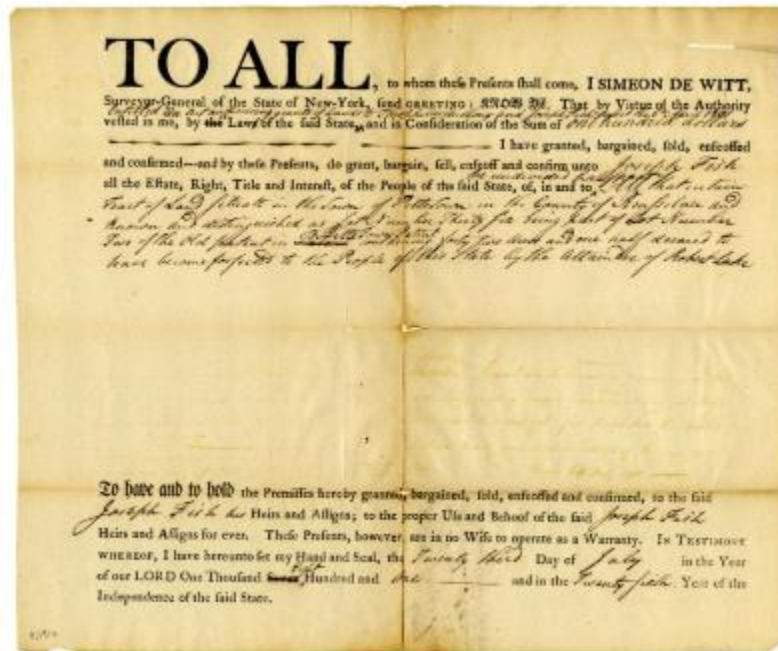 TO ALL, to whom these Presents shall come, I SIMEON DE WITT,
Surveyor-General of the State of New-York, send GREETING: KNOW YE, That by Virtue of the Authority
vested in me, by the Laws of the said State, and in Consideration of the Sum of One hundred dollars
I have granted, bargained, sold, enfeoffed
and confirmed—and by these Presents, do grant, bargain, sell, enfeoff and confirm unto Joseph Fish
all the Estate, Right, Title and Interest, of the People of the said State, of, in and to, All that certain
Tract of Land situate in the Town of Pittstown in the County of Rensselaer and
known and distinguished as Lot Number Thirty five being part of Lot Number
Two of the Old patent in containing forty five acres and one half deemed to
have become forfeited to the People of this State by the Attainder of Robert Lake
To have and to hold the Premisses hereby granted, bargained, sold, enfeoffed and confirmed, to the said
Joseph Fish his Heirs and Assigns; to the proper Use and Behoof of the said Joseph Fish
Heirs and Assigns for ever. These Presents, however, are in no Wise to operate as a Warranty. IN TESTIMONY
WHEREOF, I have hereunto set my Hand and Seal, the Twenty third Day of July in the Year
of our LORD One Thousand Seven Eight Hundred and One and in the Twenty sixth Year of the
Independence of the said State.